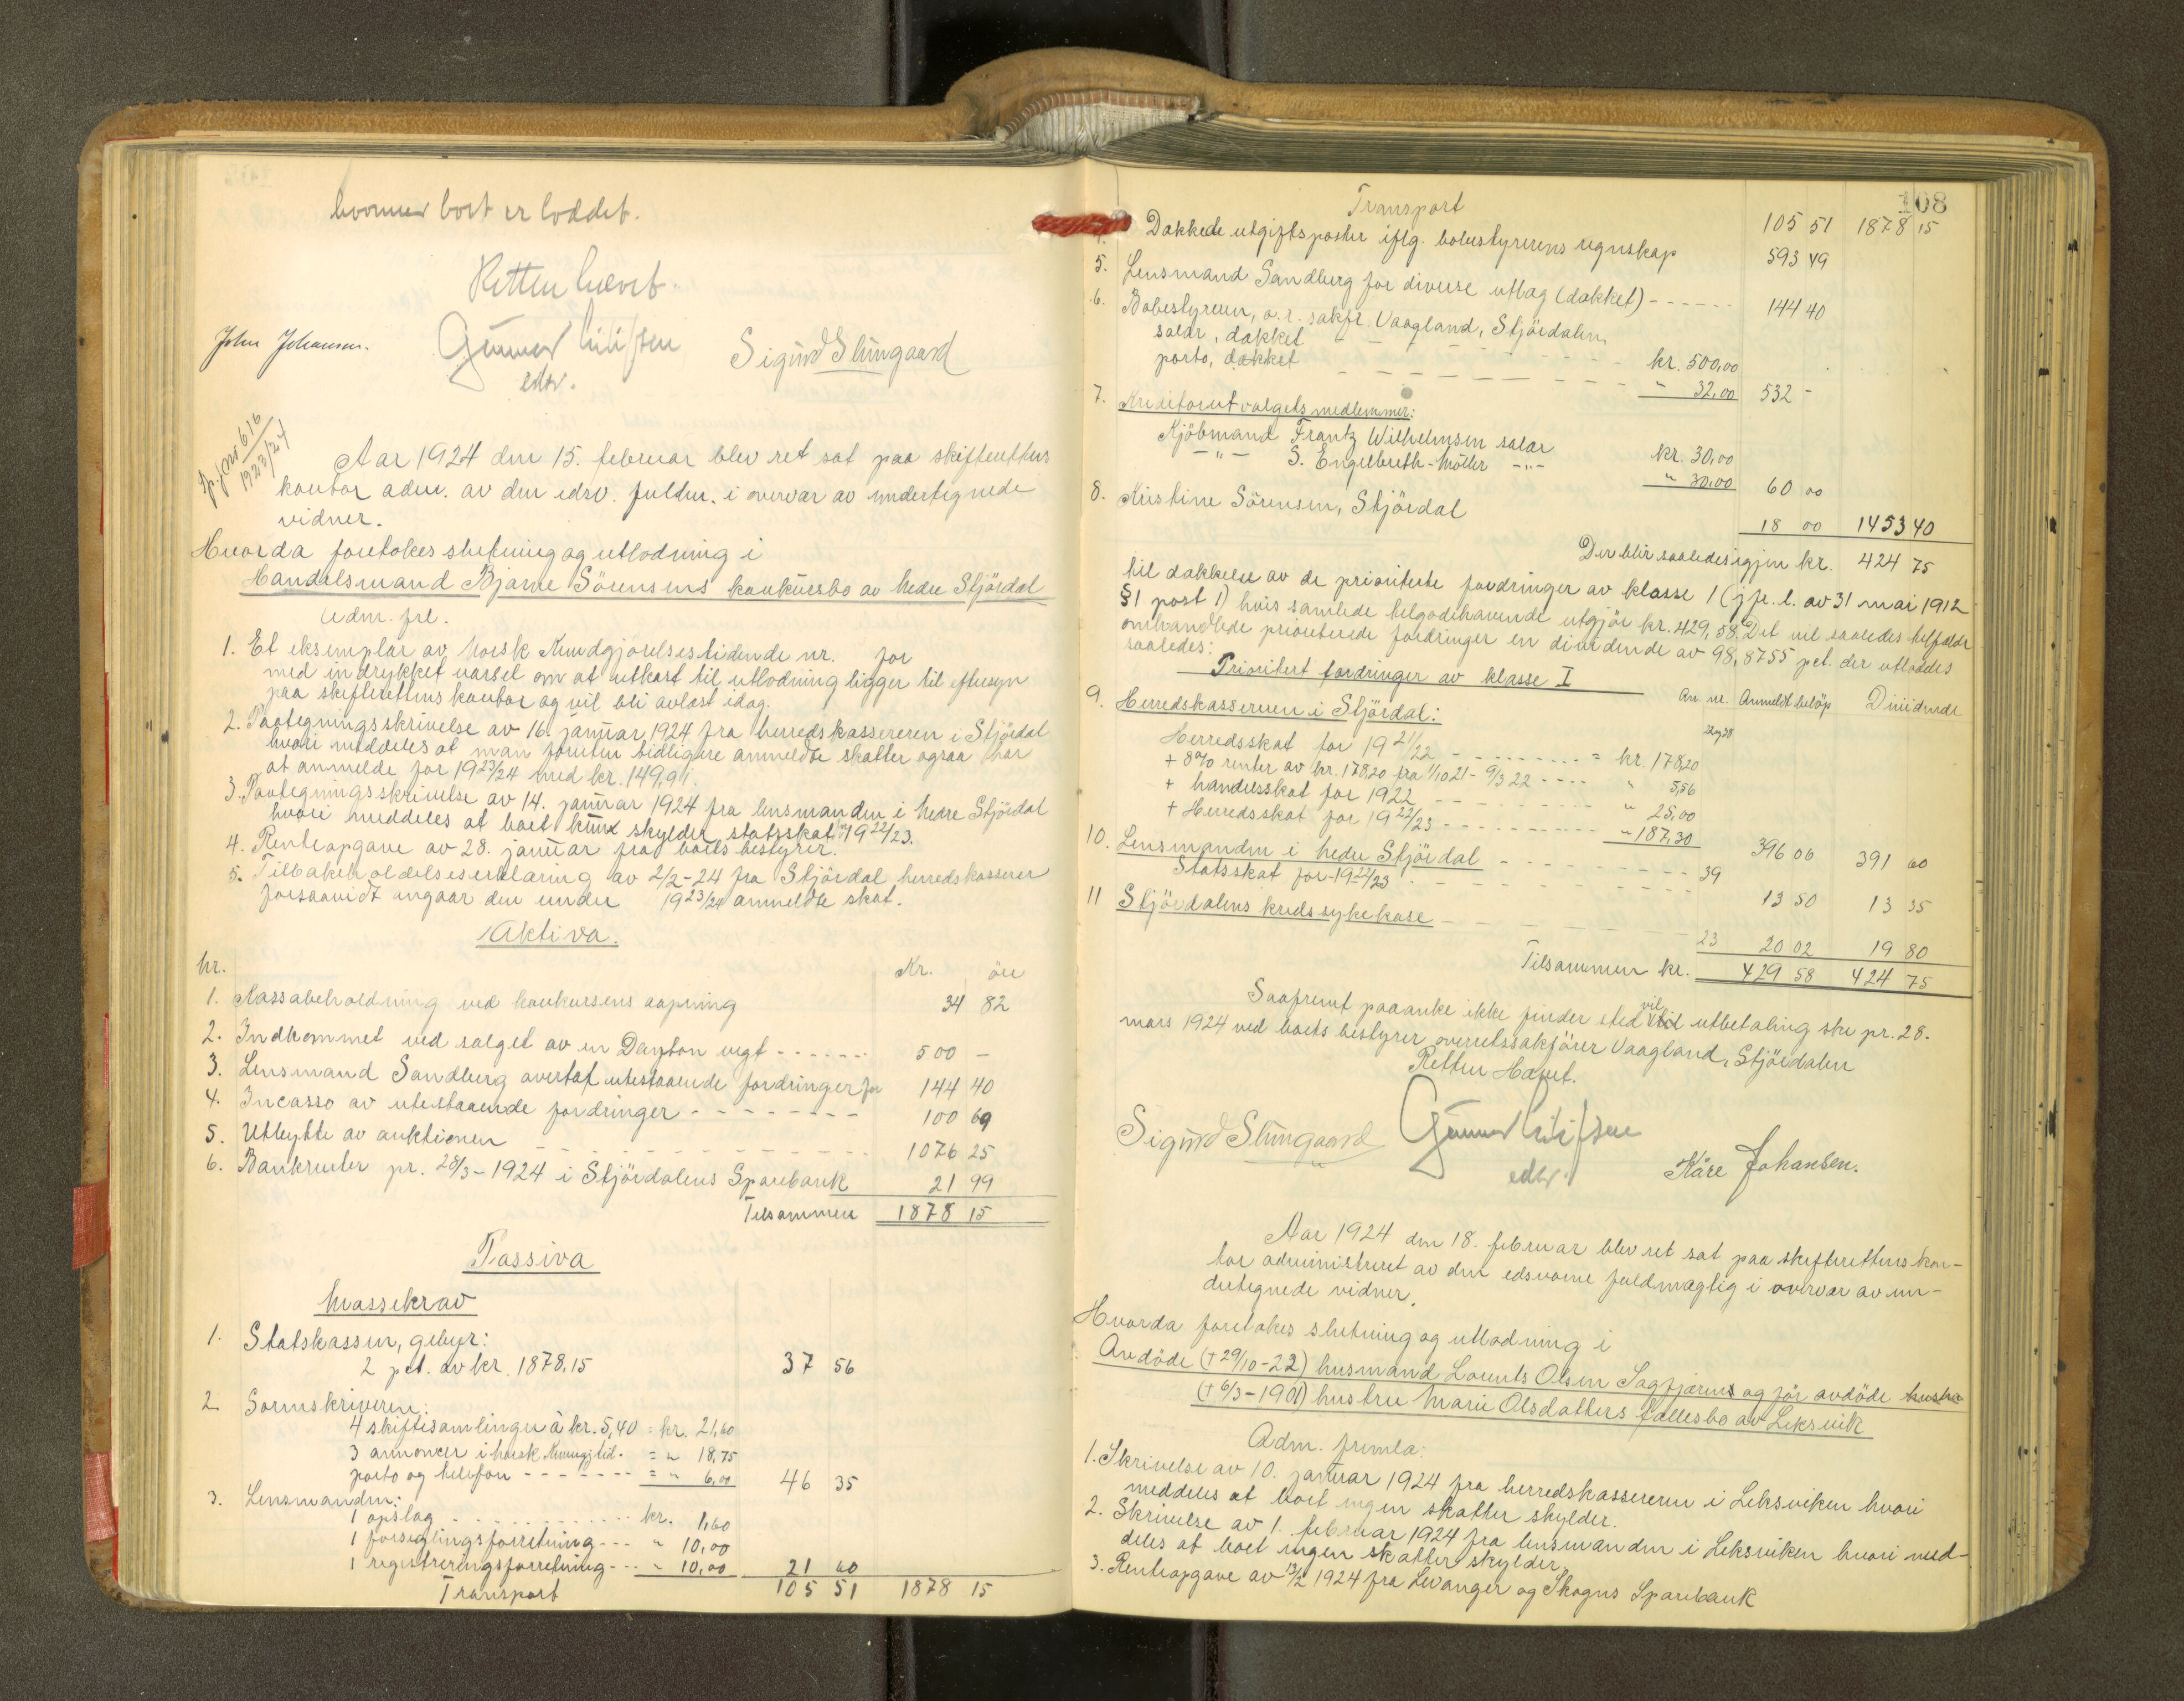 hvormed boet er loddet.
Retten hævet.
John Johansen. Gunnar Sigurd Slungaard
edsv.
Sp.j.nr. 616
1923/24
Aar 1924 den 15. februar blev ret sat paa skifterettens
kontor adm. av den edsv. fuldm. i overvær av undertegnede
vidner.
Hvorda foretokes slutning og utlodning i
Handelsmand Bjarne Sörensens konkursbo av nedre Stjördal
Adm. frl.
1. Et eksemplar av Norsk Kundgjörelsestidende nr. for
med indrykket varsel om at utkast til utlodning ligger til eftersyn
paa skifterettens kontor og vil bli avlæst idag.
2. Paategningsskrivelse av 16. januar 1924 fra herredskassereren i Stjördal
hvori meddeles at man foruten tidligere anmeldte skatter ogsaa har
at anmelde for 1923/24 med kr. 149,91.
3. Paategningsskrivelse av 14. januar 1924 fra lensmanden i nedre Stjördal
hvori meddeles at boet kun skylder statsskat 1922/23.
4. Renteopgave av 28. januar fra boets bestyrer.
5. Tilbakeholdelseserklæring av 2/2-24 fra Stjördal herredskasserer
forsaavidt angaar den under 1923/24 anmeldte skat.
Aktiva.
Nr. Kr. öre
1. Kassabeholdning ved konkursens aapning 34 82
2. Indkommet ved salget av en Dayton vegt - - - - - - 500 -
3. Lensmand Sandberg overtat utestaaende fordringer for 144 40
4. Incasso av utestaaende fordringer - - - - - - - - 100 69
5. Utbytte av auktionen - - - - - - - - - - - - 1076 25
6. Bankrenter pr. 28/3-1924 i Stjördalens Sparebank 21 99
Tilsammen 1878 15
Passiva
Massekrav
1. Statskassen, gebyr:
2 pct. av kr. 1878,15 37 56
2. Sorenskriveren:
4 skiftesamlinger à kr. 5,40 = kr. 21,60
3 annoncer i Norsk Kunngj.tid. = " 18,75
porto og telefon - - - - - - - = " 6,00 46 35
3. Lensmanden:
1 opslag - - - - - - - - - - - kr. 1,60
1 forseglingsforretning - - - " 10,00
1 registreringsforretning - - - " 10,00 21 60
Transport 105 51 1878 15
108
Transport 105 51 1878 15
4. Dækkede utgiftsposter iflg. bobestyrerens regnskap 593 49
5. Lensmand Sandberg for diverse utlæg (dækket) - - - - - - 144 40
6. Bobestyreren, o.r. sakf. Vaagland, Stjördalen,
salær, dækket - - - - - - - - - - - kr. 500,00
porto, dækket - - - - - - - - - - - " 32,00 532 -
7. Kreditorutvalgets medlemmer:
Kjöbmand Frantz Wilhelmsen salær kr. 30,00
- " - S. Engelbreth-Möller - " - " 30,00 60 00
8. Kristine Sörensen, Stjördal 18 00 1453 40
Der blir saaledes igjen kr. 424 75
til dækkelse av de prioriterte fordringer av klasse 1 (jfr. l. av 31 mai 1912
§1 post 1) hvis samlede tilgodehavende utgjör kr. 429,58. Det vil saaledes tilfalde
omhandlede prioriterede fordringer en dividende av 98,8755 pct. der utloddes
saaledes:
Prioritert fordringer av klasse I
An. nr. Anmeldt belöp Dividende
9. Herredskassereren i Stjördal:
Herredsskat for 1921/22 - - - - - - - - - = kr. 178,20
+ 8% renter av kr. 178,20 fra 1/10 21 - 9/3 22 - - - - " 5,56
+ handelsskat for 1922 - - - - - - - - - - " 25,00
+ Herredsskat for 1922/23 - - - - - - - - - - " 187,30 396 06 391 60
10. Lensmanden i nedre Stjördal - - - - - - - - - -
Statsskat for 1922/23 - - - - - - - - - - 39 13 50 13 35
11 Stjördalens kredssykekasse - - - - - - - 23 20 02 19 80
Tilsammen kr. 429 58 424 75
Saafremt paaanke ikke finder sted vil utbetaling ske pr. 28.
mars 1924 ved boets bestyrer overretssakförer Vaagland, Stjördalen
Retten Hævet.
Sigurd Slungaard Gunnar Kåre Johansen.
edsv.
Aar 1924 den 18. februar blev ret sat paa skifterettens kon-
tor administreret av den edsvorne fuldmægtig i overvær av un-
dertegnede vidner.
Hvorda foretokes slutning og utlodning i
Avdöde (+ 29/10-22) husmand Lorents Olsen Sagfjærens og för avdöde hustru
(+ 6/3-1901) hustru Marie Olsdatters fællesbo av Leksvik
Adm. fremla:
1. Skrivelse av 10. januar 1924 fra herredskassereren i Leksviken hvori
meddeles at boet ingen skatter skylder.
2. Skrivelse av 1. februar 1924 fra lensmanden i Leksviken hvori med-
deles at boet ingen skatter skylder.
3. Renteopgave av 13/2 1924 fra Levanger og Skogns Sparebank